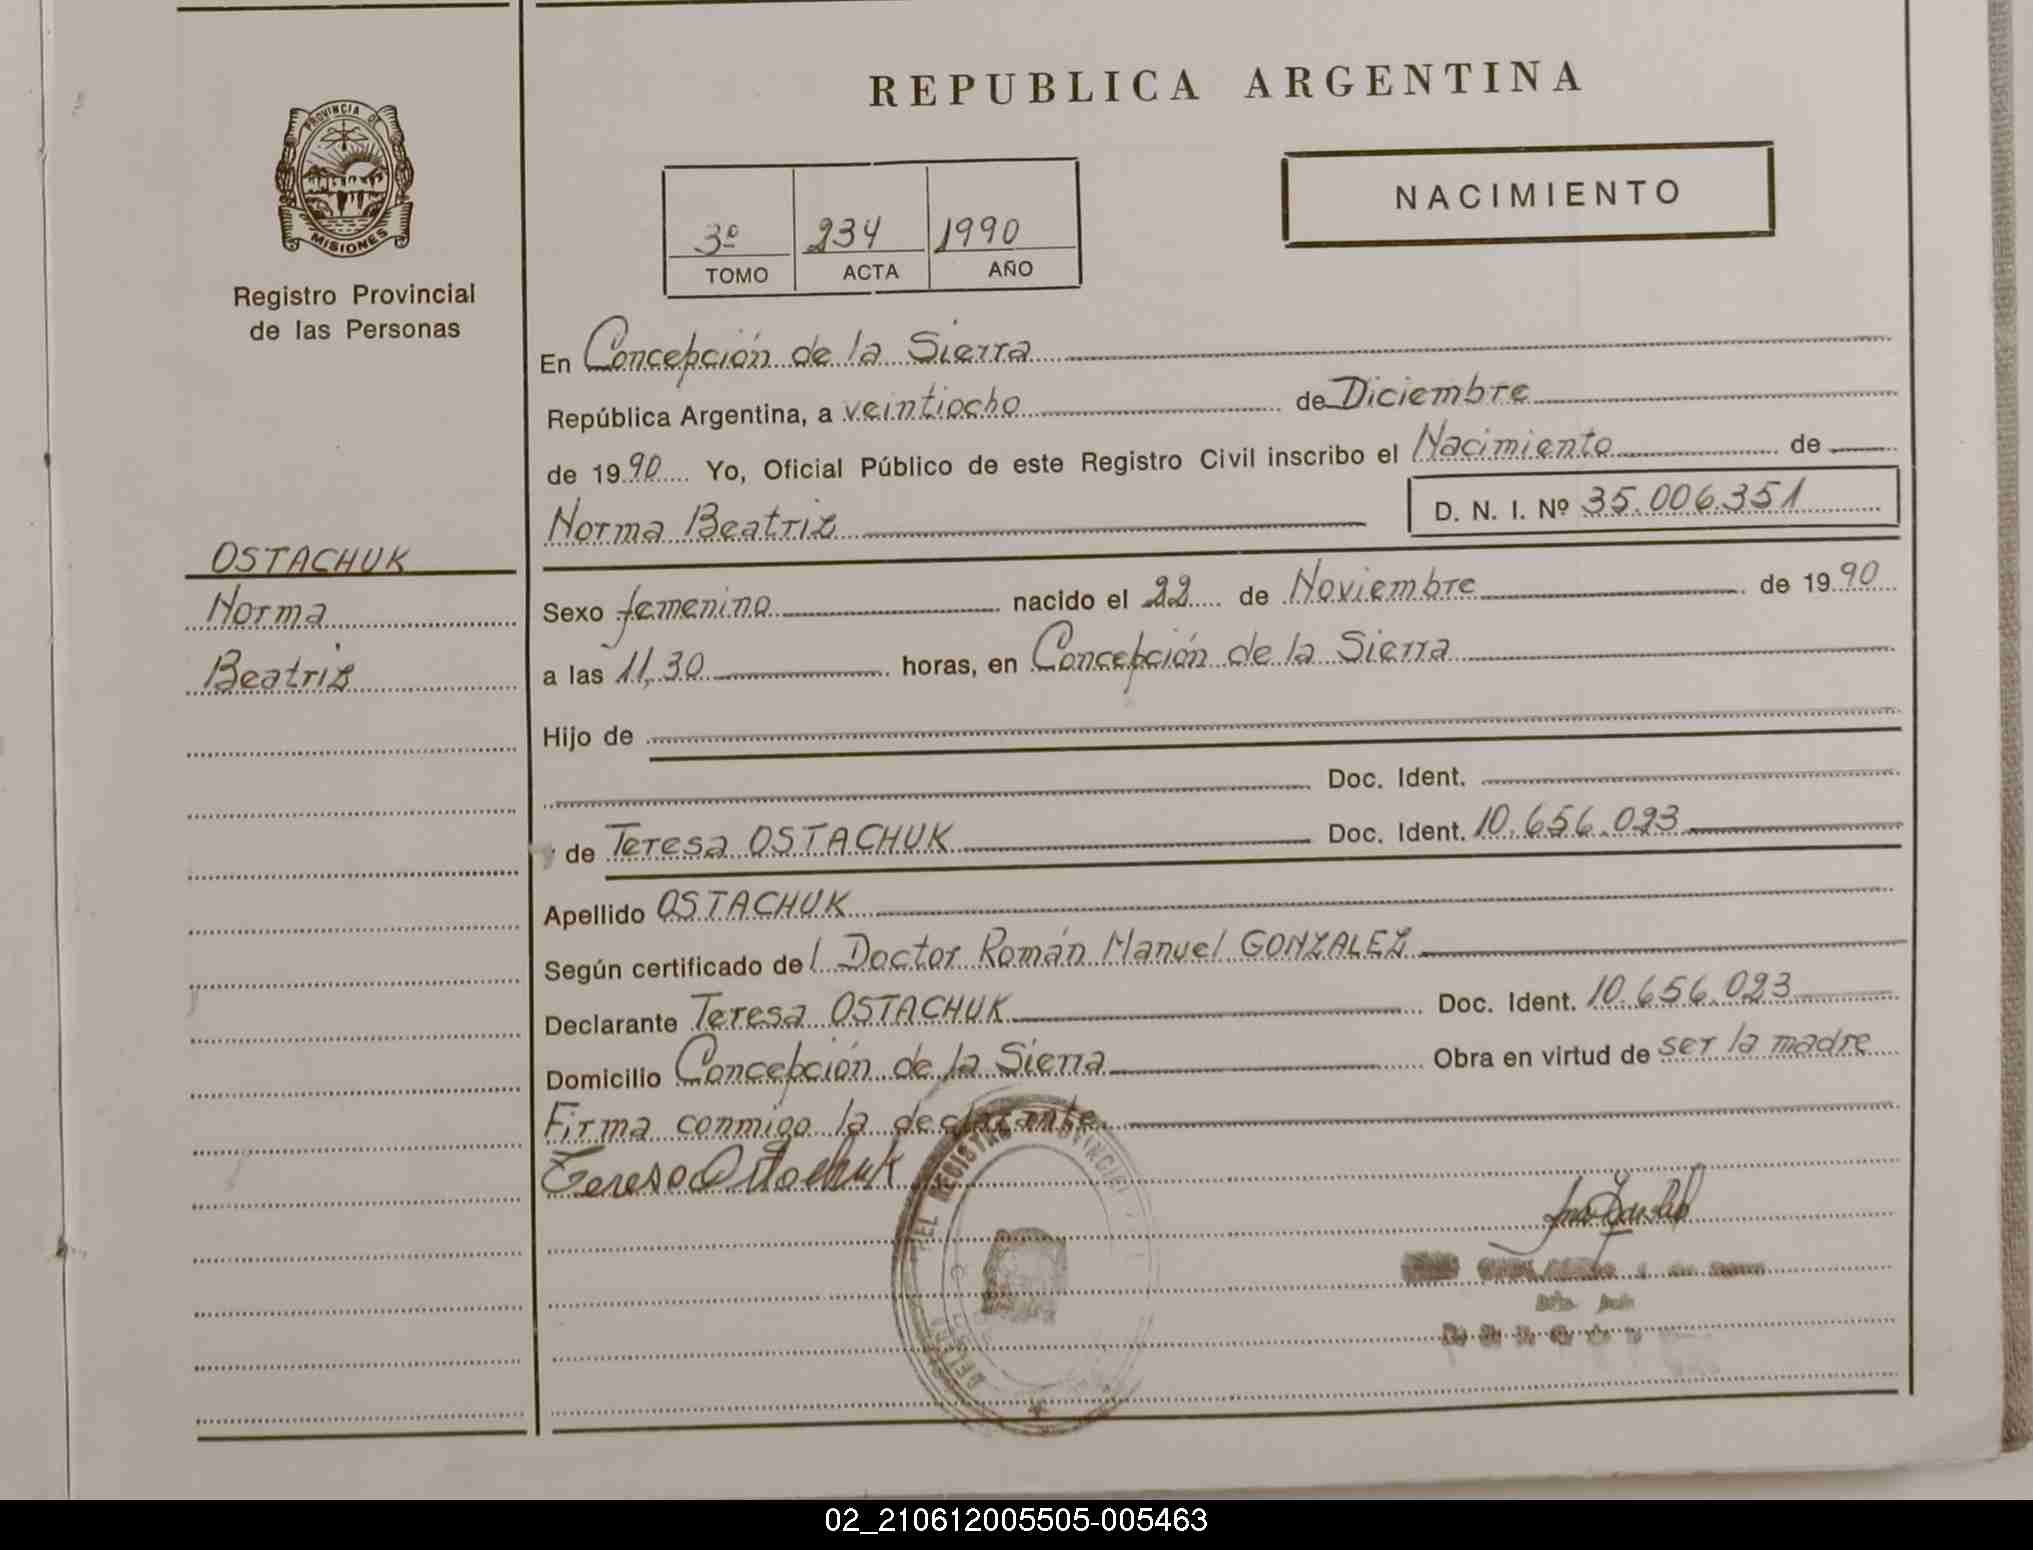 REPUBLICA ARGENTINA
PROVINCIA DE
MISIONES
Registro Provincial
de las Personas
NACIMIENTO
3º 234 1990
TOMO ACTA AÑO
En Concepción de la Sierra
República Argentina, a veintiocho de Diciembre
de 1990 Yo, Oficial Público de este Registro Civil inscribo el Nacimiento de
Norma Beatriz D. N. I. Nº 35.006.351
OSTACHUK
Norma
Beatriz
Sexo femenino nacido el 22 de Noviembre de 1990
a las 11,30 horas, en Concepción de la Sierra
Hijo de
Doc. Ident.
y de Teresa OSTACHUK Doc. Ident. 10.656.023
Apellido OSTACHUK
Según certificado del Doctor Román Manuel GONZALEZ
Declarante Teresa OSTACHUK Doc. Ident. 10.656.023
Domicilio Concepción de la Sierra Obra en virtud de ser la madre
Firma conmigo la declarante
Teresa Ostachuk
DEL REGISTRO PROVINCIAL
02_210612005505-005463